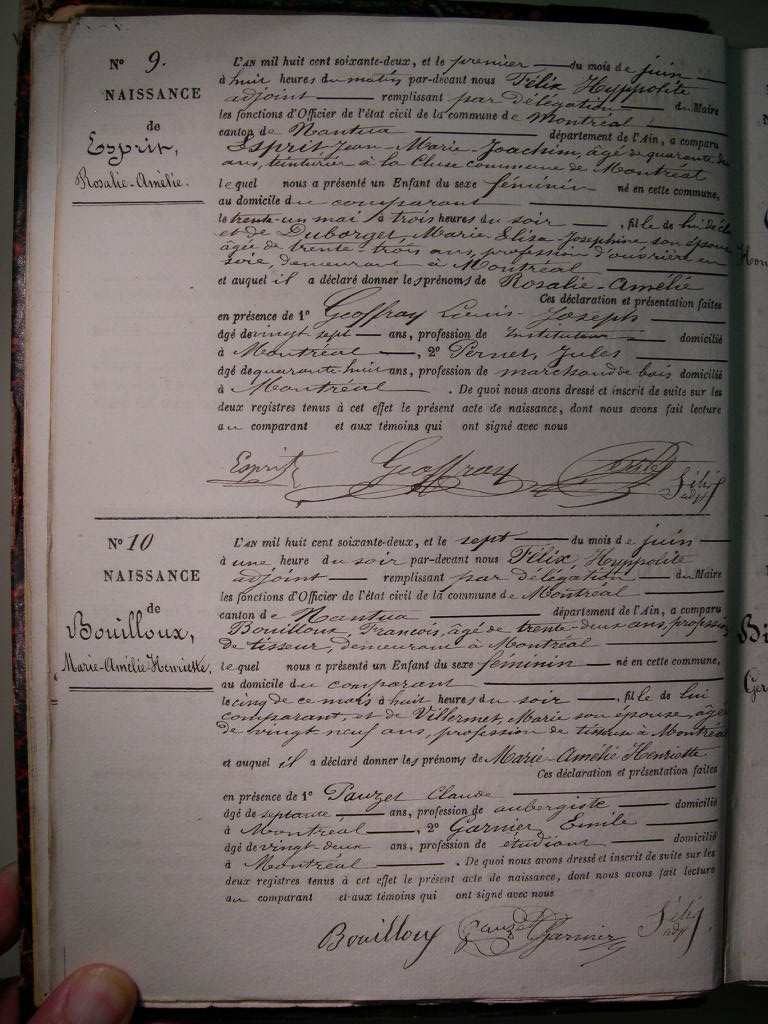 N° 9.
NAISSANCE
de
Esprit,
Rosalie-Amélie.
L'AN mil huit cent soixante-deux, et le premier du mois de juin
à huit heures du matin par-devant nous Félix Hyppolite
adjoint remplissant par délégation du Maire
les fonctions d'Officier de l'état civil de la commune de Montréal
canton de Nantua département de l'Ain, a comparu
Esprit Jean-Marie-Joachim, âgé de quarante deux
ans, teinturier à la Cluse commune de Montréal
lequel nous a présenté un Enfant du sexe féminin né en cette commune,
au domicile du comparant
le trente-un mai à trois heures du soir, fille de lui décl
et de Duborget, Marie Elisa Josephine son épouse
âgée de trente-trois ans, profession d'ouvrière en
soie, demeurant à Montréal
et auquel il a déclaré donner les prénoms de Rosalie-Amélie
Ces déclaration et présentation faites
en présence de 1° Geoffray Louis Joseph
âgé de vingt sept ans, profession de Instituteur domicilié
à Montréal, 2° Pernet, Jules
âgé de quarante-huit ans, profession de marchand de bois domicilié
à Montréal. De quoi nous avons dressé et inscrit de suite sur les
deux registres tenus à cet effet le présent acte de naissance, dont nous avons fait lecture
au comparant et aux témoins qui ont signé avec nous
Esprit Geoffray Félix
adjt
N° 10
NAISSANCE
de
Bouilloux,
Marie-Amélie-Henriette.
L'AN mil huit cent soixante-deux, et le sept du mois de juin
à une heure du soir par-devant nous Félix, Hyppolite
adjoint remplissant par délégation du Maire
les fonctions d'Officier de l'état civil de la commune de Montréal
canton de Nantua département de l'Ain, a comparu
Bouilloux, Francois, âgé de trente-deux ans, profession
de tisseur, demeurant à Montréal
lequel nous a présenté un Enfant du sexe féminin né en cette commune,
au domicile du comparant
le cinq de ce mois à huit heures du soir, fille de lui
comparant, et de Villermet, Marie son épouse, âgée
de vingt neuf ans, profession de tisseuse à Montréal
et auquel il a déclaré donner les prénoms de Marie-Amélie Henriette
Ces déclaration et présentation faites
en présence de 1° Pauget Claude
âgé de septante, ans, profession de aubergiste domicilié
à Montréal, 2° Garnier, Emile
âgé de vingt-deux ans, profession de étudiant domicilié
à Montréal. De quoi nous avons dressé et inscrit de suite sur les
deux registres tenus à cet effet le présent acte de naissance, dont nous avons fait lecture
au comparant et aux témoins qui ont signé avec nous
Bouilloux Pauget Garnier Félix
adjt